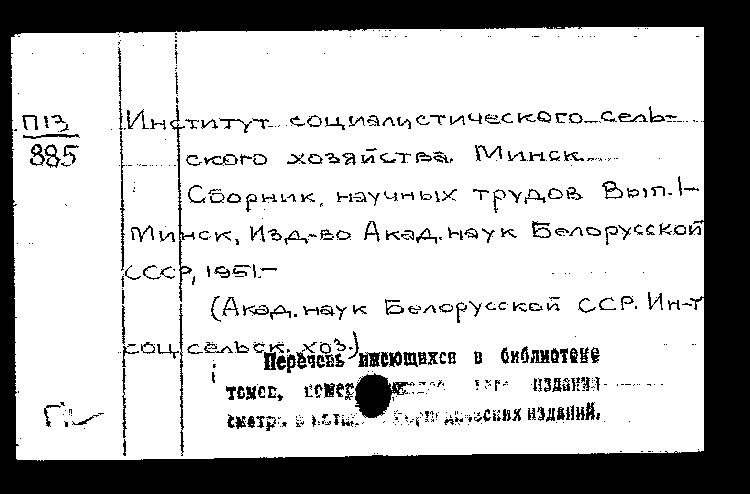 П13
885
Институт социалистического сель-
ского хозяйства. Минск.
Сборник научных трудов Вып. 1-
Минск, Изд-во Акад. наук Белорусской
СССР, 1951.-
(Акад. наук Белорусской ССР. Ин-т
соц. сельск. хоз.)
Перечень имеющихся в библиотеке
томов, издания
смотри в изданий.